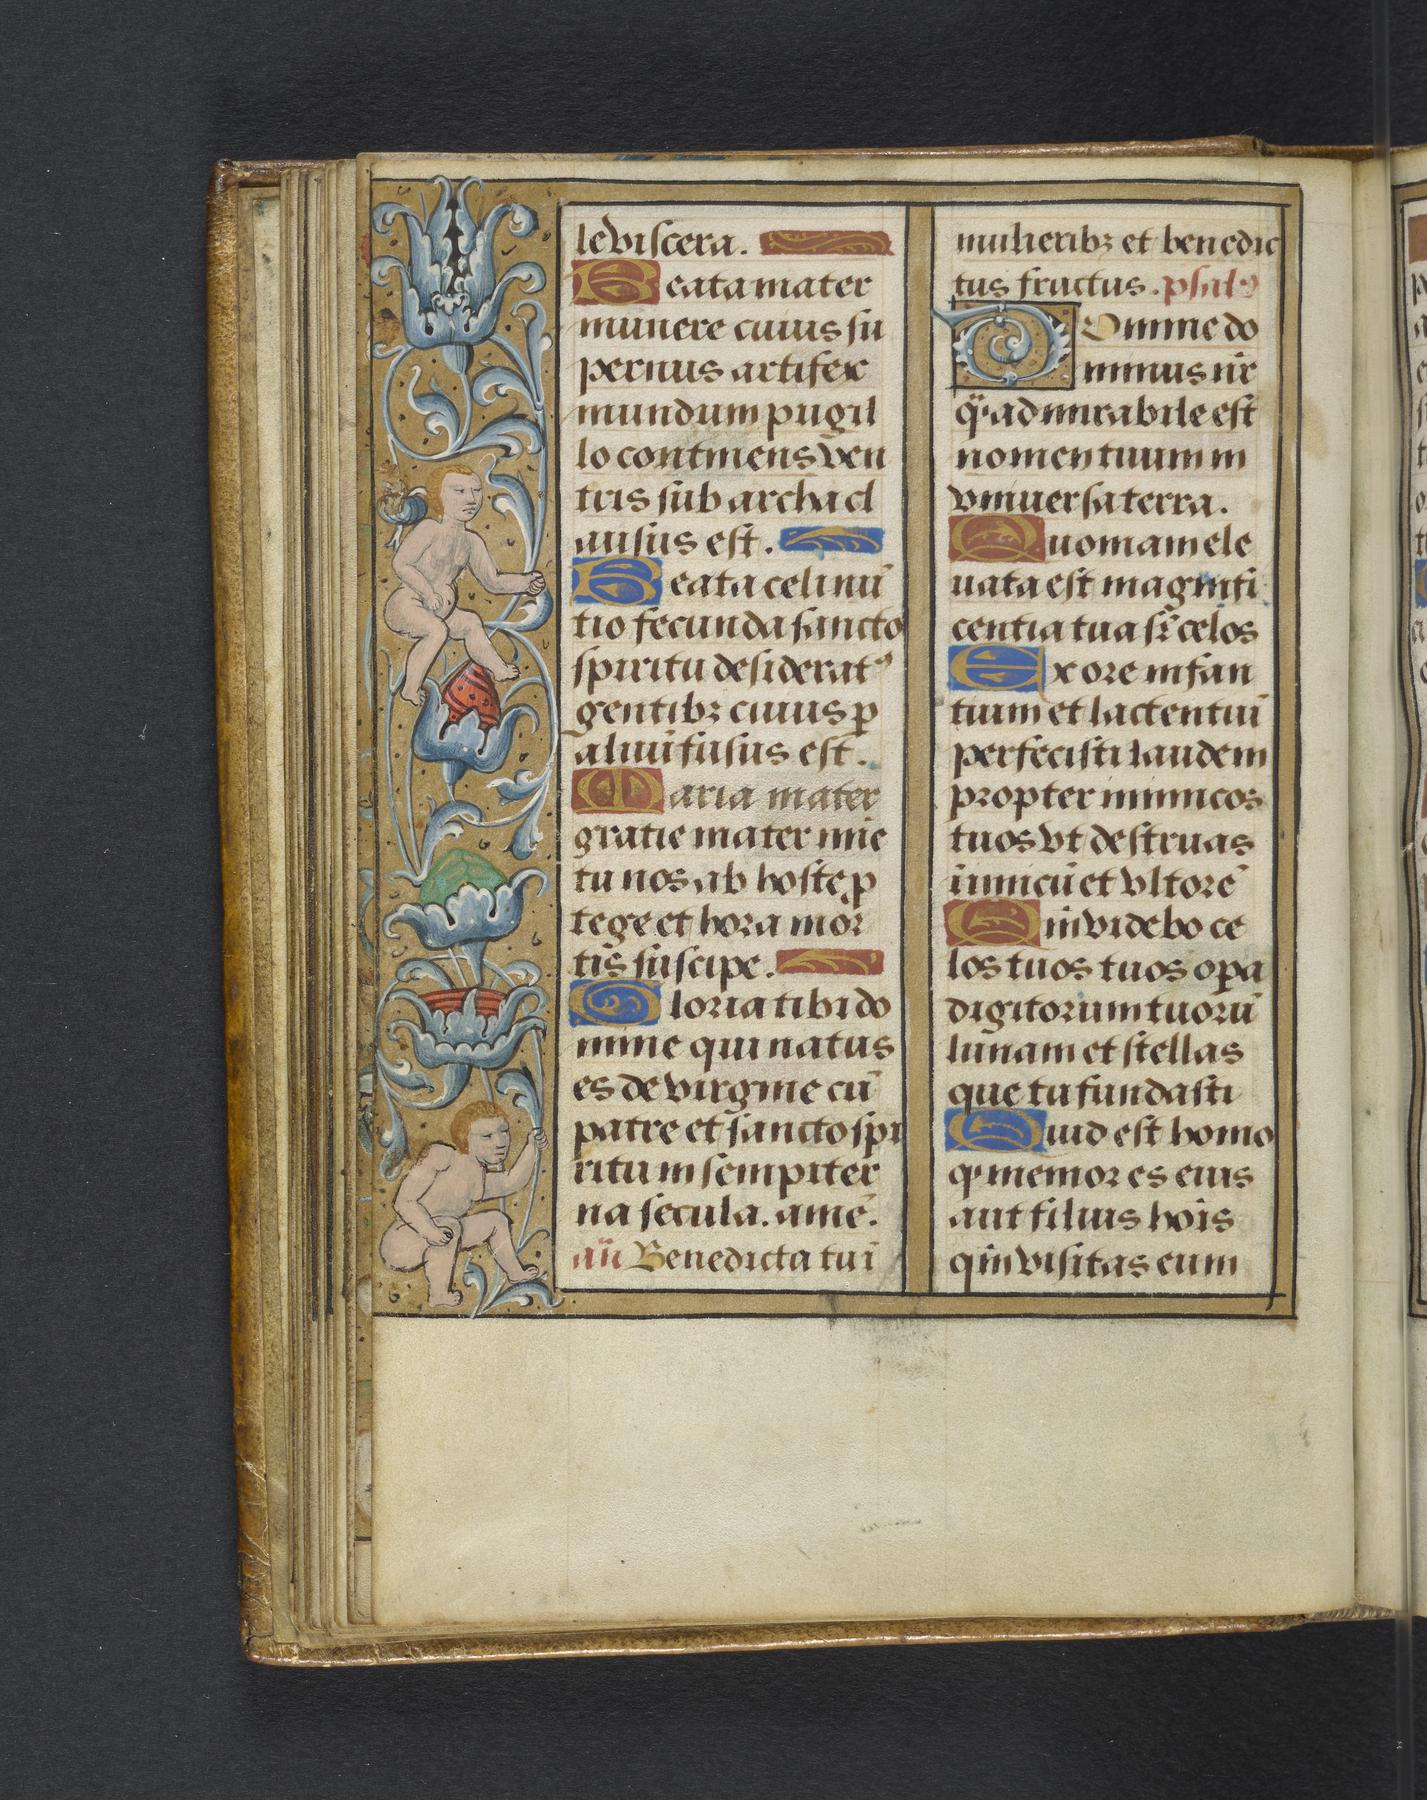 le viscera.
Beata mater
munere cuius su
pernus artifex
mundum pugil
lo continens ven
tris sub archa cl
ausus est.
Beata celi nū
tio fecunda sancto
spiritu desideratꝰ
gentibꝫ cuius ꝑ
aluū fusus est.
Maria mater
gratie mater mie
tu nos ab hoste p
tege et hora mor
tis suscipe.
Gloria tibi do
mine qui natus
es de virgine cū
patre et sancto spi
ritu in sempiter
na secula. amē.
añ Benedicta tu ī
mulieribꝫ et benedic
tus fructus. psalꝰ
Domine do
minus nr̄
q̄ admirabile est
nomen tuum in
vniuersa terra.
Quoniam ele
uata est magnifi
centia tua sr̄ celos
Ex ore infan
tium et lactentiū
perfecisti laudem
propter inimicos
tuos vt destruas
inimicū et vltorē
Qm̄ videbo ce
los tuos tuos oꝑa
digitorum tuorū
lunam et stellas
que tu fundasti
Quid est homo
q memor es eius
aut filius hoīs
qm̄ visitas eum